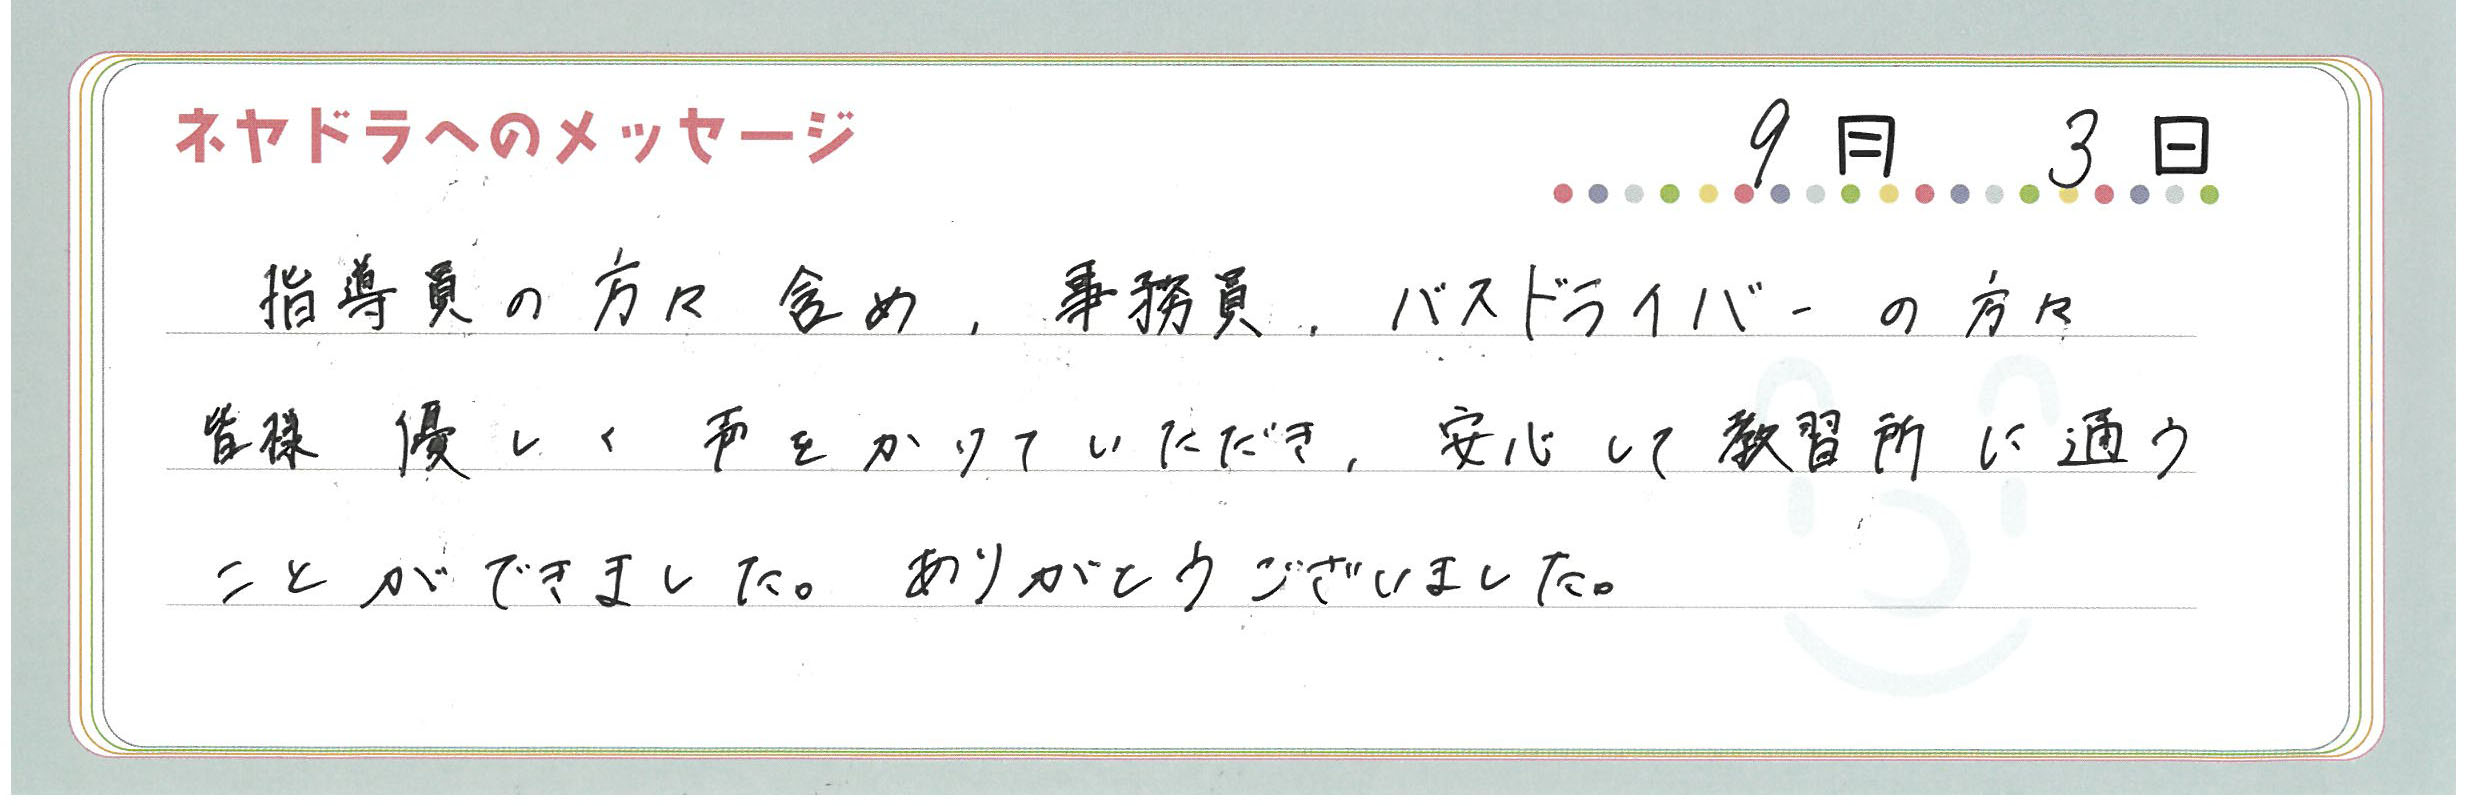 ネヤドラへのメッセージ
9月 3日
指導員の方々含め、事務員、バスドライバーの方々
皆様優しく声をかけていただき、安心して教習所に通う
ことができました。ありがとうございました。